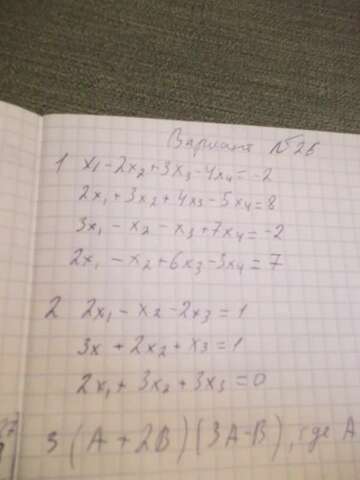 Вариант №26
1 x₁-2x₂+3x₃-4x₄=-2
2x₁+3x₂+4x₃-5x₄=8
3x₁-x₂-x₃+7x₄=-2
2x₁-x₂+6x₃-3x₄=7
2 2x₁-x₂-2x₃=1
3x+2x₂+x₃=1
2x₁+3x₂+3x₃=0
3 (A+2B)(3A-B), где A